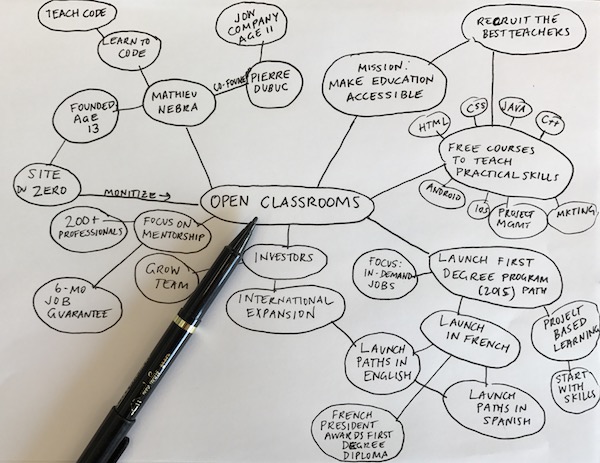 TEACH CODE
LEARN TO
CODE
JOIN
COMPANY
AGE 11
MATHIEU
NEBRA
CO-FOUND
PIERRE
DUBUC
FOUNDED
AGE
13
SITE
DU ZERO
MONITIZE →
MISSION:
MAKE EDUCATION
ACCESSIBLE
RECRUIT THE
BEST TEACHERS
FREE COURSES
TO TEACH
PRACTICAL SKILLS
HTML
CSS
JAVA
C++
ANDROID
IOS
PROJECT
MGMT
MKTING
OPEN CLASSROOMS
200+
PROFESSIONALS
FOCUS ON
MENTORSHIP
6-MO
JOB
GUARANTEE
GROW
TEAM
INVESTORS
INTERNATIONAL
EXPANSION
FOCUS:
IN-DEMAND
JOBS
LAUNCH FIRST
DEGREE PROGRAM
(2015) PATH
PROJECT
BASED
LEARNING
START
WITH
SKILLS
LAUNCH
IN FRENCH
LAUNCH
PATHS IN
ENGLISH
LAUNCH
PATHS IN
SPANISH
FRENCH
PRESIDENT
AWARDS FIRST
DEGREE
DIPLOMA